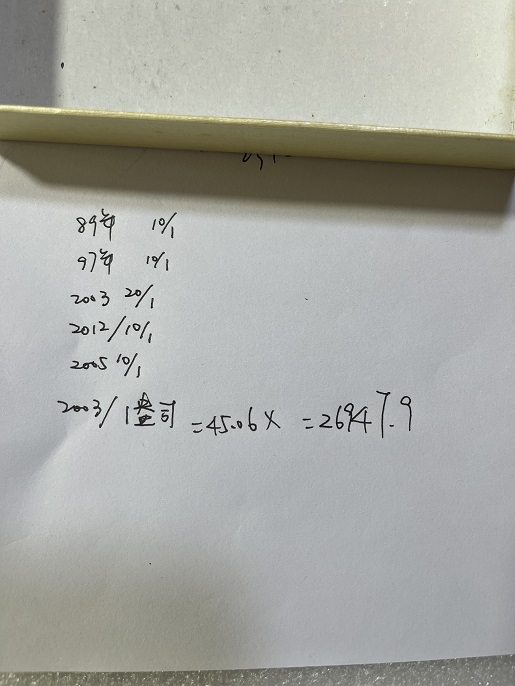 89年 10/1
97年 10/1
2003 20/1
2012/10/1
2005 10/1
2003/1盎司 =45.06X =26947.9